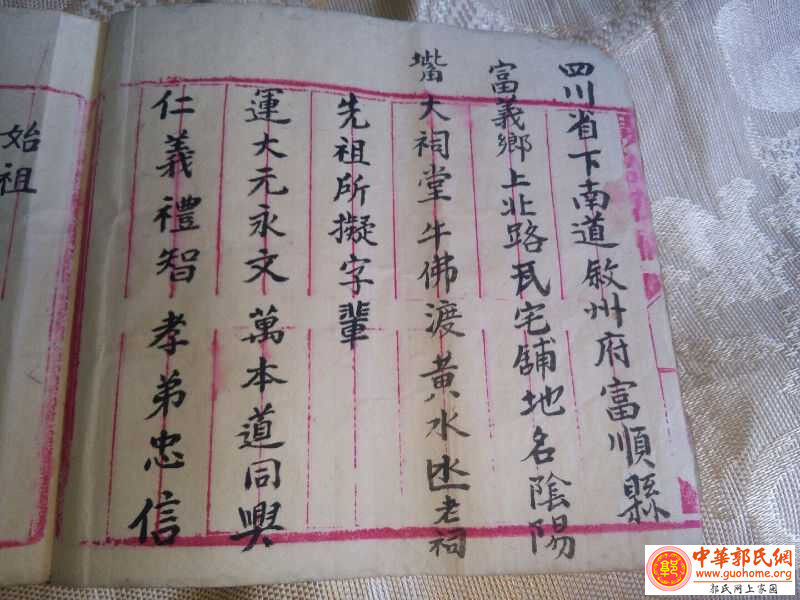 四川省下南道敘州府富順縣
富義鄉上北路民宅舖地名陰陽
嘴大祠堂牛佛渡黃水凼老祠
先祖所擬字輩
運大元永文萬本道同興
仁義禮智孝弟忠信
始祖
中華郭氏網
www.guohome.org
郭氏网上家園